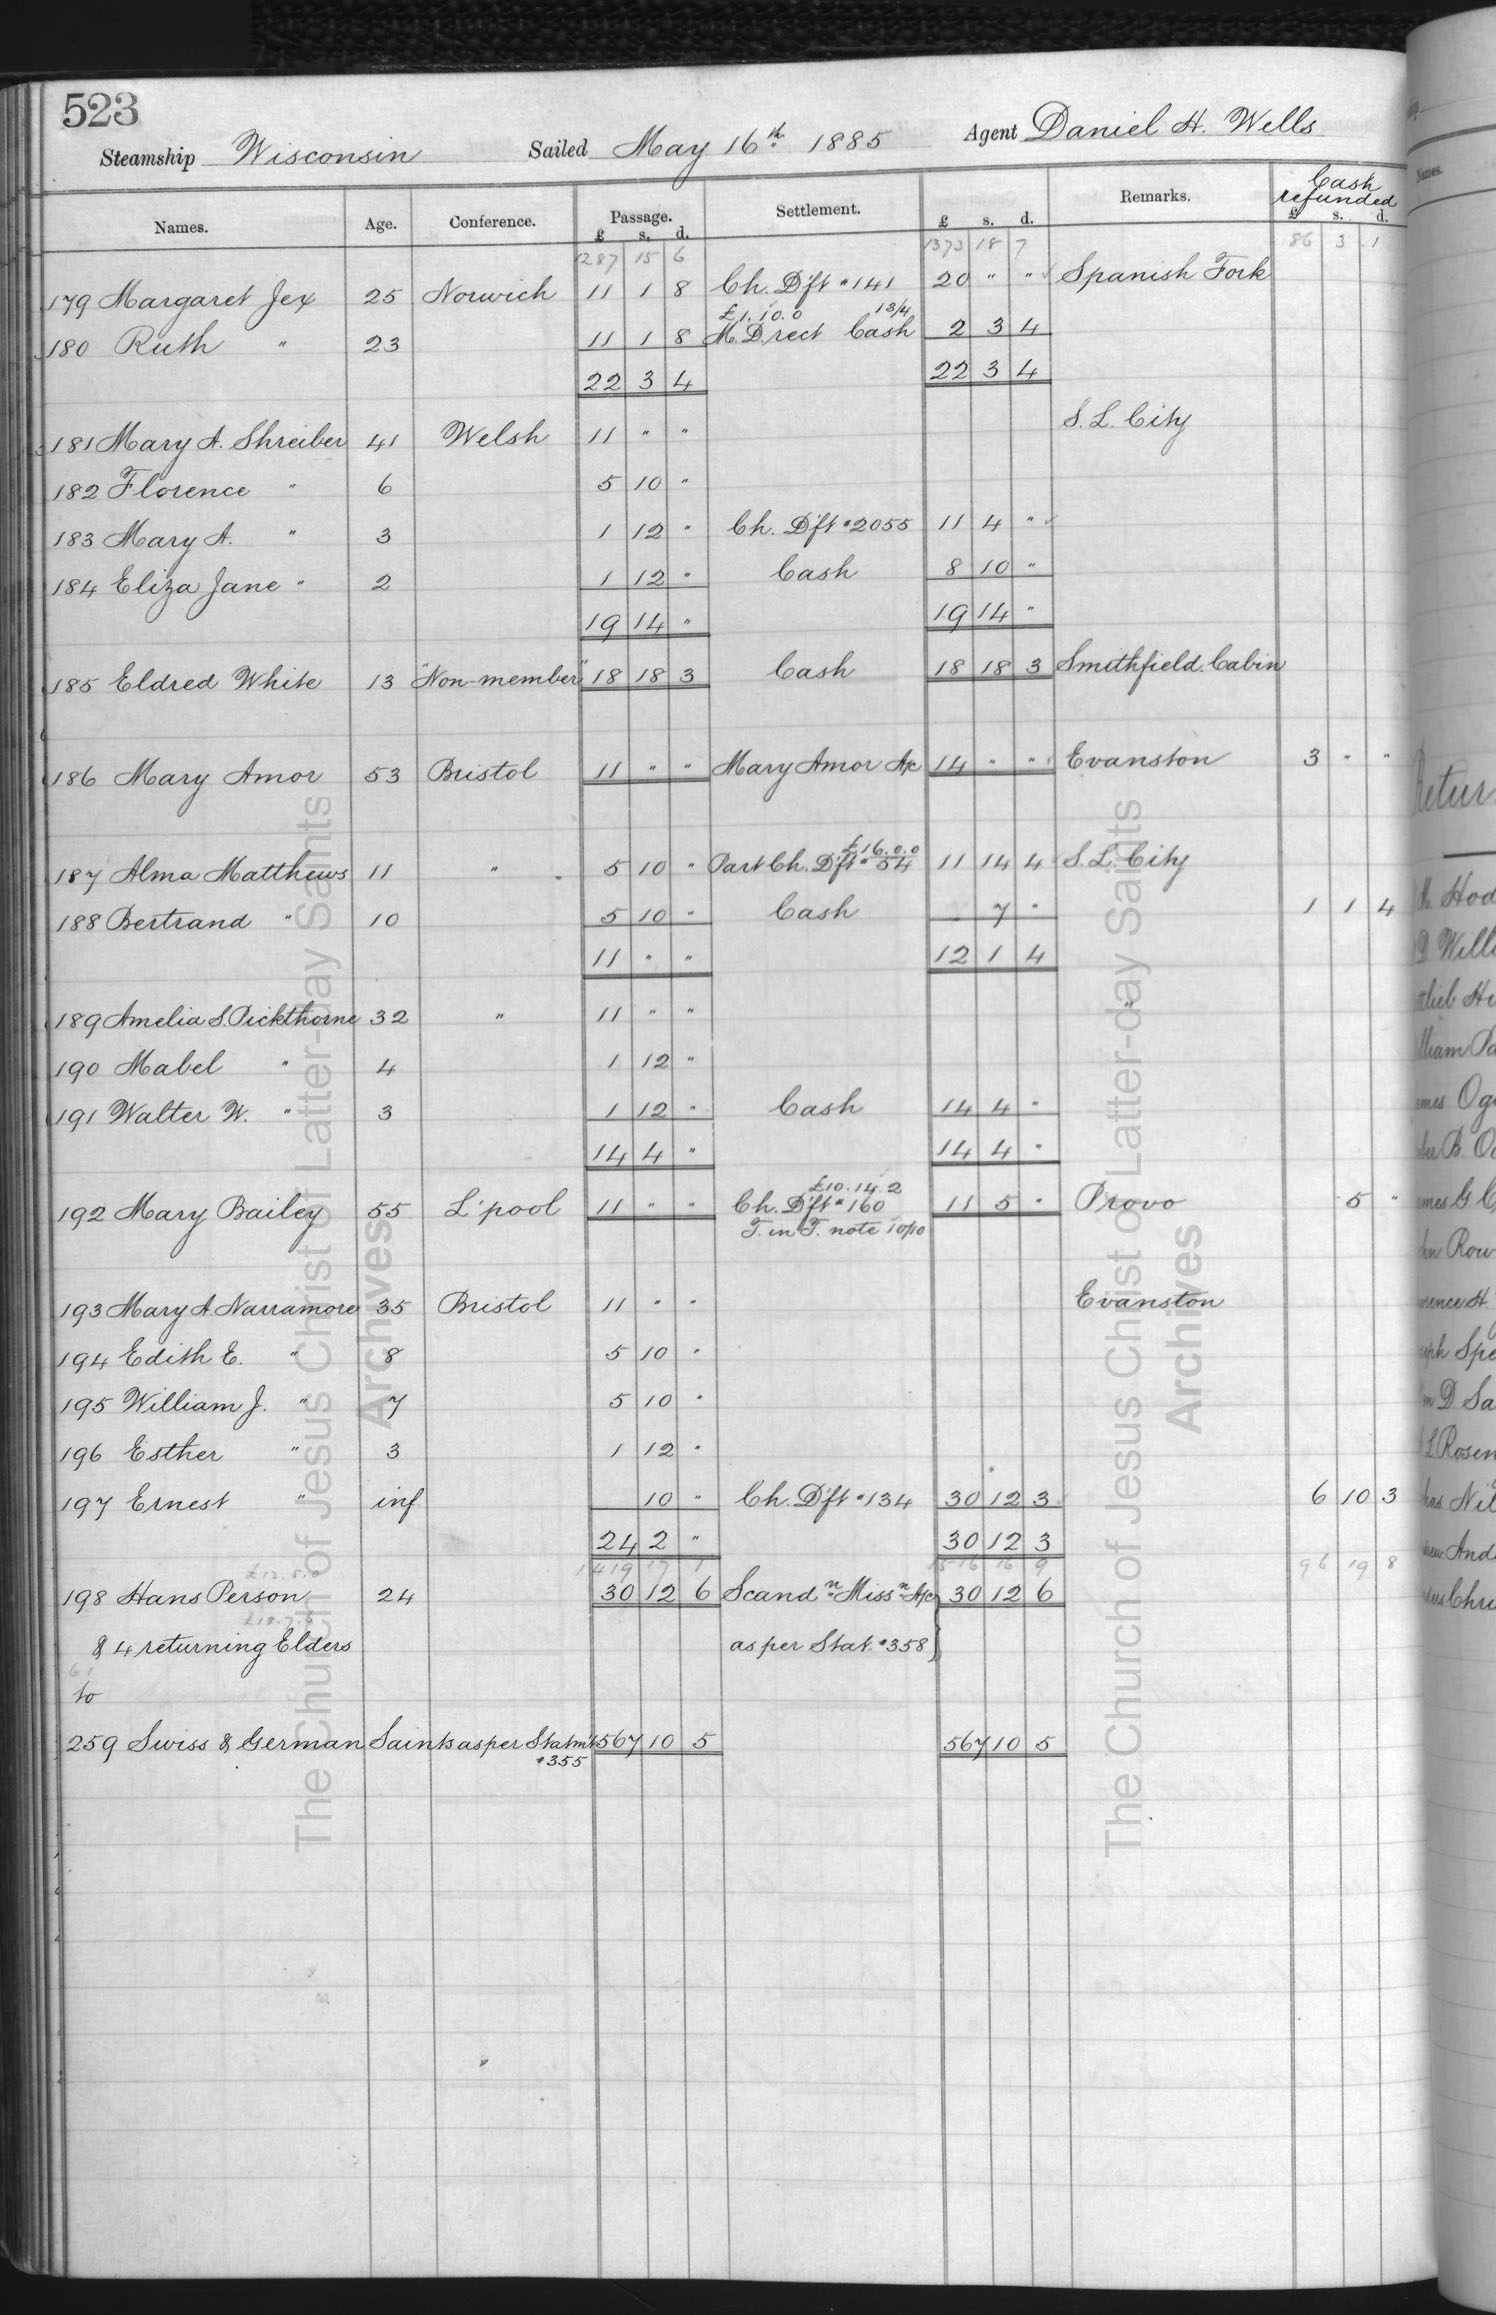 523
Steamship Wisconsin Sailed May 16th 1885 Agent Daniel H. Wells
Names. Age. Conference. Passage. Settlement. £ s. d. Remarks. Cash refunded
£ s. d. £ s. d.
1287 15 6 1373 18 7 86 3 1
179 Margaret Jex 25 Norwich 11 1 8 Ch. Dft #141 20 " " Spanish Fork
£1.10.0 13/4
180 Ruth " 23 11 1 8 M.D. rect Cash 2 3 4
22 3 4 22 3 4
181 Mary A. Shreiber 41 Welsh 11 " " S. L. City
182 Florence " 6 5 10 "
183 Mary A. " 3 1 12 " Ch. Dft #2055 11 4 "
184 Eliza Jane " 2 1 12 " Cash 8 10 "
19 14 " 19 14 "
185 Eldred White 13 "Non-member" 18 18 3 Cash 18 18 3 Smithfield. Cabin
186 Mary Amor 53 Bristol 11 " " Mary Amor A/c 14 " " Evanston 3 " "
£16.0.0
187 Alma Matthews 11 " 5 10 " Part Ch. Dft # 54 11 14 4 S. L. City
188 Bertrand " 10 5 10 " Cash 7 " 1 1 4
11 " " 12 1 4
189 Amelia S. Pickthorne 32 " 11 " " "
190 Mabel " 4 1 12 "
191 Walter W. " 3 1 12 " Cash 14 4 "
14 4 " 14 4 "
£10.14.2
192 Mary Bailey 55 L'pool 11 " " Ch. Dft #160 11 5 " Provo 5 "
T. in T. note 10/10
193 Mary A. Narramore 35 Bristol 11 " " Evanston
194 Edith E. " 8 5 10 "
195 William J. " 7 5 10 "
196 Esther " 3 1 12 "
197 Ernest " inf. 10 " Ch. Dft #134 30 12 3 6 10 3
24 2 " 30 12 3
1419 17 1 1516 16 9 96 19 8
£12.5.0
198 Hans Person 24 30 12 6 Scandn Missn A/c 30 12 6
£18.7.6
& 4 returning Elders as per Stat. #358
61
to
259 Swiss & German Saints as per Statmt 567 10 5 567 10 5
#355
The Church of Jesus Christ of Latter-day Saints
Archives
The Church of Jesus Christ of Latter-day Saints
Archives